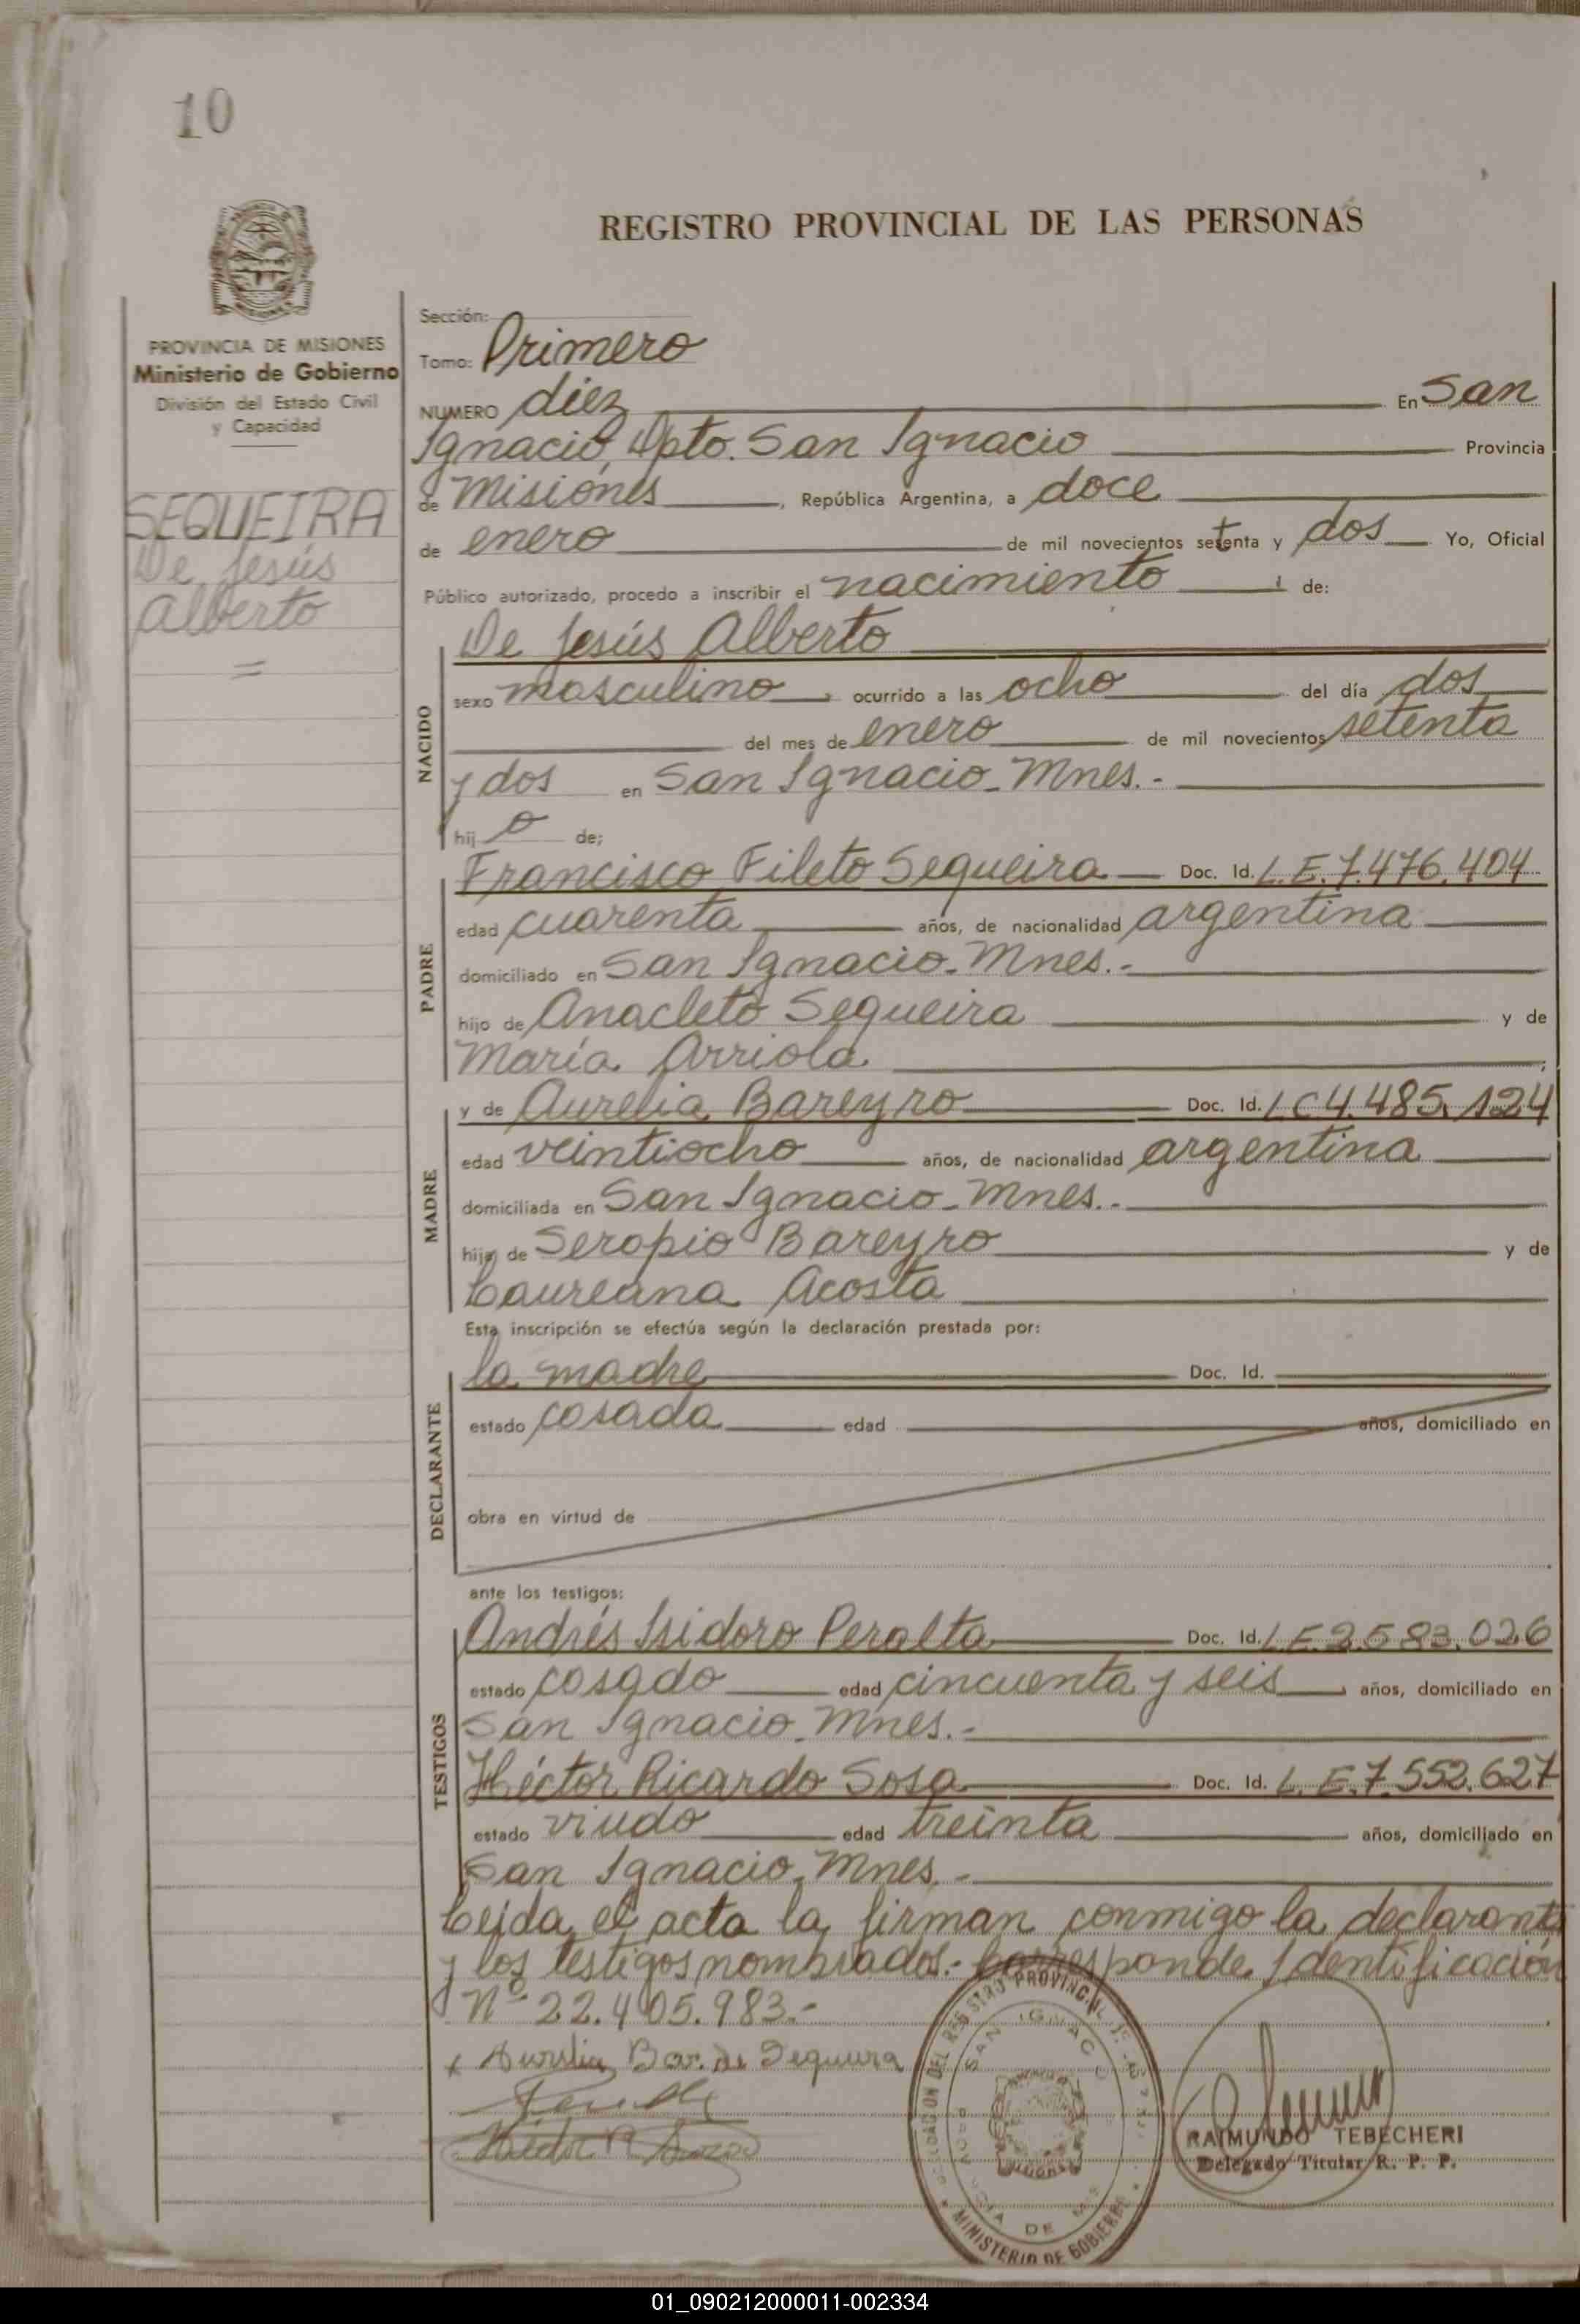 10
REGISTRO PROVINCIAL DE LAS PERSONAS
PROVINCIA DE MISIONES
Ministerio de Gobierno
División del Estado Civil
y Capacidad
SEQUEIRA
De Jesús
Alberto
=
Sección:
Tomo: Primero
NUMERO diez En San
Ignacio, Dpto. San Ignacio Provincia
de Misiones, República Argentina, a doce
de enero de mil novecientos setenta y dos Yo, Oficial
Público autorizado, procedo a inscribir el nacimiento de:
NACIDO
De Jesús Alberto
sexo masculino, ocurrido a las ocho del día dos
del mes de enero de mil novecientos setenta
y dos en San Ignacio - Mnes.-
hij o de;
PADRE
Francisco Fileto Sequeira Doc. Id. L.E. 7.476.404
edad cuarenta años, de nacionalidad argentina
domiciliado en San Ignacio - Mnes.-
hijo de Anacleto Sequeira y de
María Arriola;
MADRE
y de Aurelia Bareyro Doc. Id. L C 4.485.124
edad veintiocho años, de nacionalidad argentina
domiciliada en San Ignacio - Mnes.-
hija de Seropio Bareyro y de
Laureana Acosta
Esta inscripción se efectúa según la declaración prestada por:
DECLARANTE
la madre Doc. Id.
estado casada edad años, domiciliado en
obra en virtud de
ante los testigos:
TESTIGOS
Andrés Isidoro Peralta Doc. Id. L.E. 2.583.026
estado casado edad cincuenta y seis años, domiciliado en
San Ignacio - Mnes.-
Héctor Ricardo Sosa Doc. Id. L.E. 7.552.627
estado viudo edad treinta años, domiciliado en
San Ignacio - Mnes.-
Leída el acta la firman conmigo la declarante
y los testigos nombrados.- Corresponde Identificación
Nº 22.405.983.-
x Aurelia Bar. de Sequeira
Héctor R Sosa
DEL REGISTRO PROVINCIAL
SAN IGNACIO
DE
MINISTERIO DE GOBIERNO
RAIMUNDO TEBECHERI
Delegado Titular R. P. P.
01_090212000011-002334